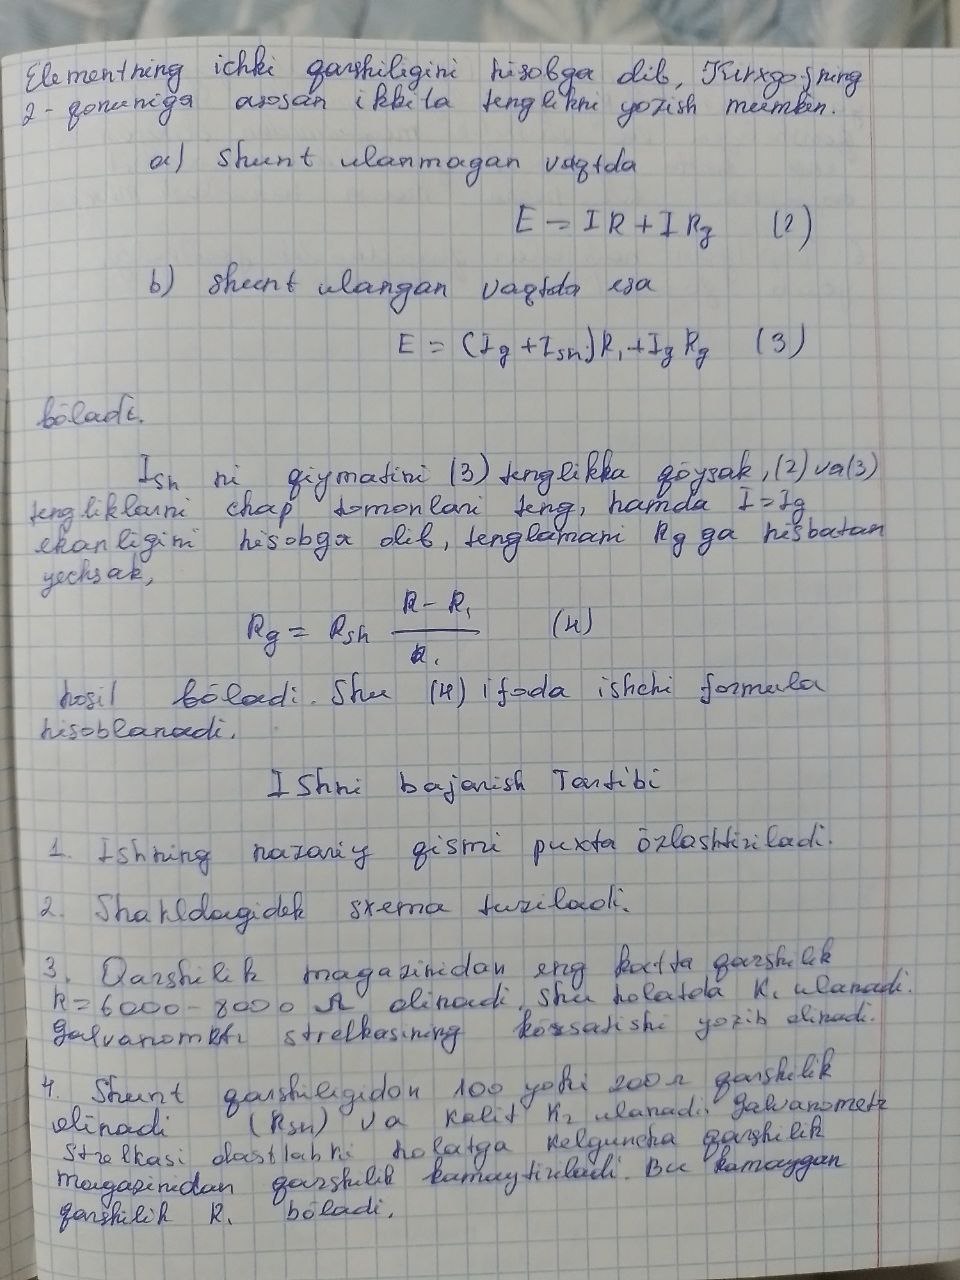 Elementning ichki qarshiligini hisobga olib, Kirxgofning
2-qonuniga asosan ikkita tenglikni yozish mumkin.
a) Shunt ulanmagan vaqtda
E = IR + I Rg (2)
b) shunt ulangan vaqtda esa
E = (Ig + Ish)R₁ + Ig Rg (3)
bóladi.
Ish ni qiymatini (3) tenglikka qóysak, (2) va (3)
tengliklarni chap tomonlari teng, hamda I = Ig
ekanligini hisobga olib, tenglamani Rg ga nisbatan
yechsak,
Rg = Rsh (R - R₁)/R₁ (4)
hosil bóladi. Shu (4) ifoda ishchi formula
hisoblanadi.
IShni bajarish Tartibi
1. Ishning nazariy qismi puxta özlashtiriladi.
2. Shakldagidek sxema tuziladi.
3. Qarshilik magazinidan eng katta qarshilik
R = 6000 - 8000 Ω olinadi, shu holatda K₁ ulanadi.
galvanometr strelkasining körsatishi yozib olinadi.
4. Shunt qarshiligidan 100 yoki 200 Ω qarshilik
olinadi (Rsh) va kalit K₂ ulanadi, galvanometr
strelkasi dastlabki holatga kelguncha qarshilik
magazinidan qarshilik kamaytiriladi. Bu kamaygan
qarshilik R₁ bóladi.